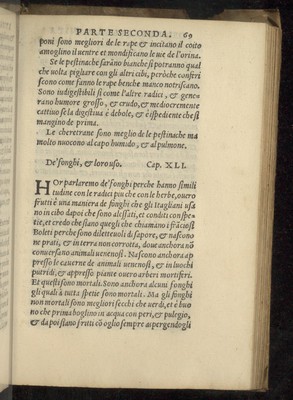 PARTE SECONDA. 69
poni sono megliori de le rape & incitano il coito
amogliono il uentre et mondificano le uie de l'orina.
Se le pestinache saranno bianche si potranno qual
che uolta pigliare con gli altri cibi, perche constri
scono come fanno le rape benche manco notriscano.
Sono indigestibili si come l'altre radici, & gene
rano humore grosso, & crudo, & mediocremente
cattiuo se la digestiua è debole, & è ispediente che si
mangino de prima.
Le cheretrane sono meglio de le pestinache ma
molto nuocono al capo humido, & al pulmone.
De' fonghi, & loro uso. Cap. XLI.
HOr parleremo de' fonghi perche hanno simili
tudine con le radici piu che con le herbe, ouero
frutti è una maniera de funghi che gli Itagliani usa
no in cibo dapoi che sono alessati, et conditi con spe
tie, et credo che siano quegli che chiamano i frãciosi
Boleti perche sono diletteuoli de sapore, & nascono
ne prati, & in terra non corrotta, doue anchora nõ
conuersano animali uenenosi. Nascono anchora ap
presso le cauerne de animali uenenosi, & in luochi
putridi, & appresso piante ouero arbori mortiferi.
Et questi sono mortali. Sono anchora alcuni fonghi
gli quali à tutta spetie sono mortali. Ma gli fũghi
non mortali sono megliori secchi che uerdi, et è buo
no che prima boglino in acqua con peri, & pulegio,
& da poi siano fritti cõ oglio sempre aspergendogli